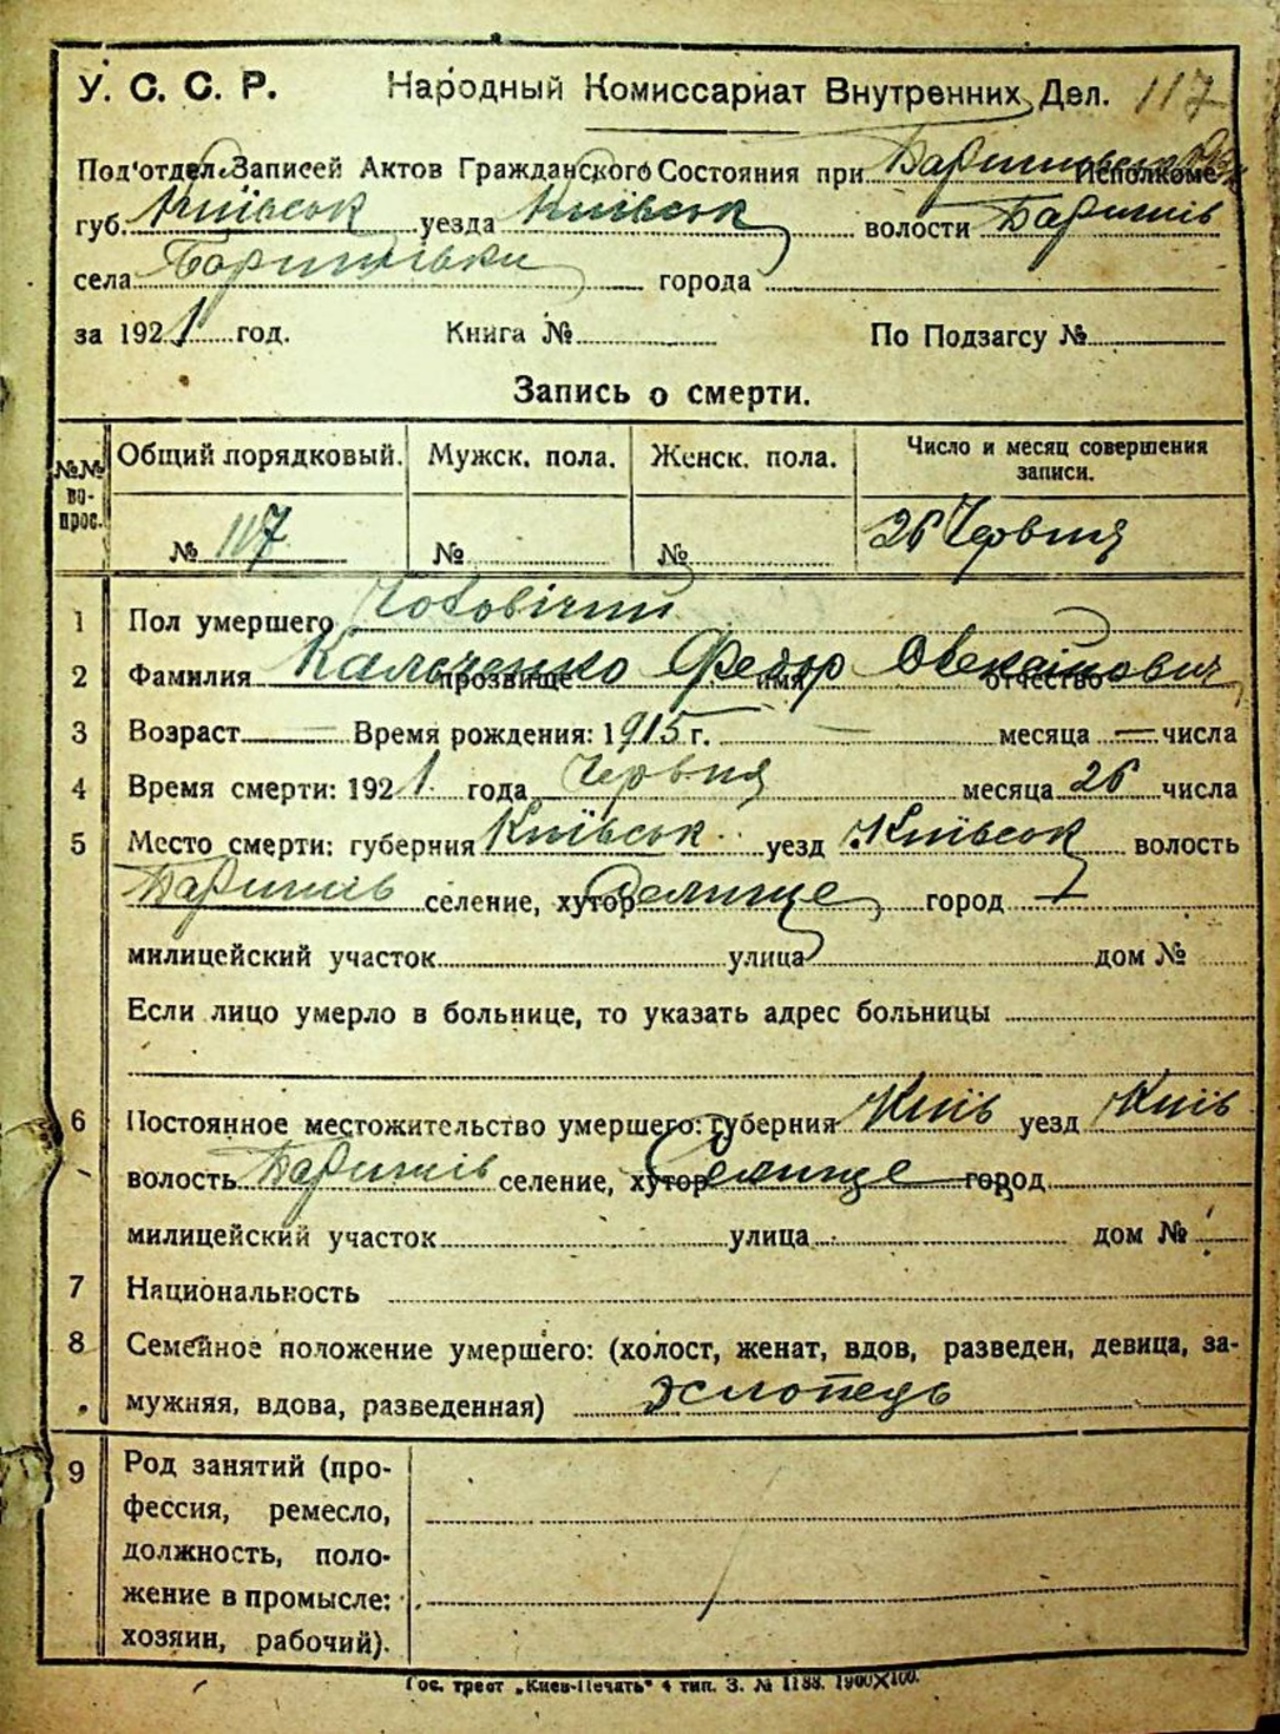 У. С. С. Р. Народный Комиссариат Внутренних Дел. 117
Под'отдел Записей Актов Гражданского Состояния при Исполкоме
губ. Київськ уезда Київськ волости Баришів
села города
за 1921 год. Книга № По Подзагсу №
Запись о смерти.
№№ вопрос. Общий порядковый. Мужск. пола. Женск. пола. Число и месяц совершения записи.
№ 117 № № 26 Червня
1 Пол умершего Чоловічий
2 Фамилия Кальченко прозвище Федор имя отчество
3 Возраст — Время рождения: 1915 г. — месяца — числа
4 Время смерти: 1921 года Червня месяца 26 числа
5 Место смерти: губерния Київськ уезд Київськ волость
Баришів селение, хутор Селище город —
милицейский участок улица дом №
Если лицо умерло в больнице, то указать адрес больницы
6 Постоянное местожительство умершего: губерния Київ уезд Київ
волость Баришів селение, хутор Селище город
милицейский участок улица дом №
7 Национальность
8 Семейное положение умершего: (холост, женат, вдов, разведен, девица, за-
мужняя, вдова, разведенная) хлопець
9 Род занятий (про-
фессия, ремесло,
должность, поло-
жение в промысле:
хозяин, рабочий).
Гос. трест „Киев-Печать" 4 тип. З. № 1188. 1900X100.